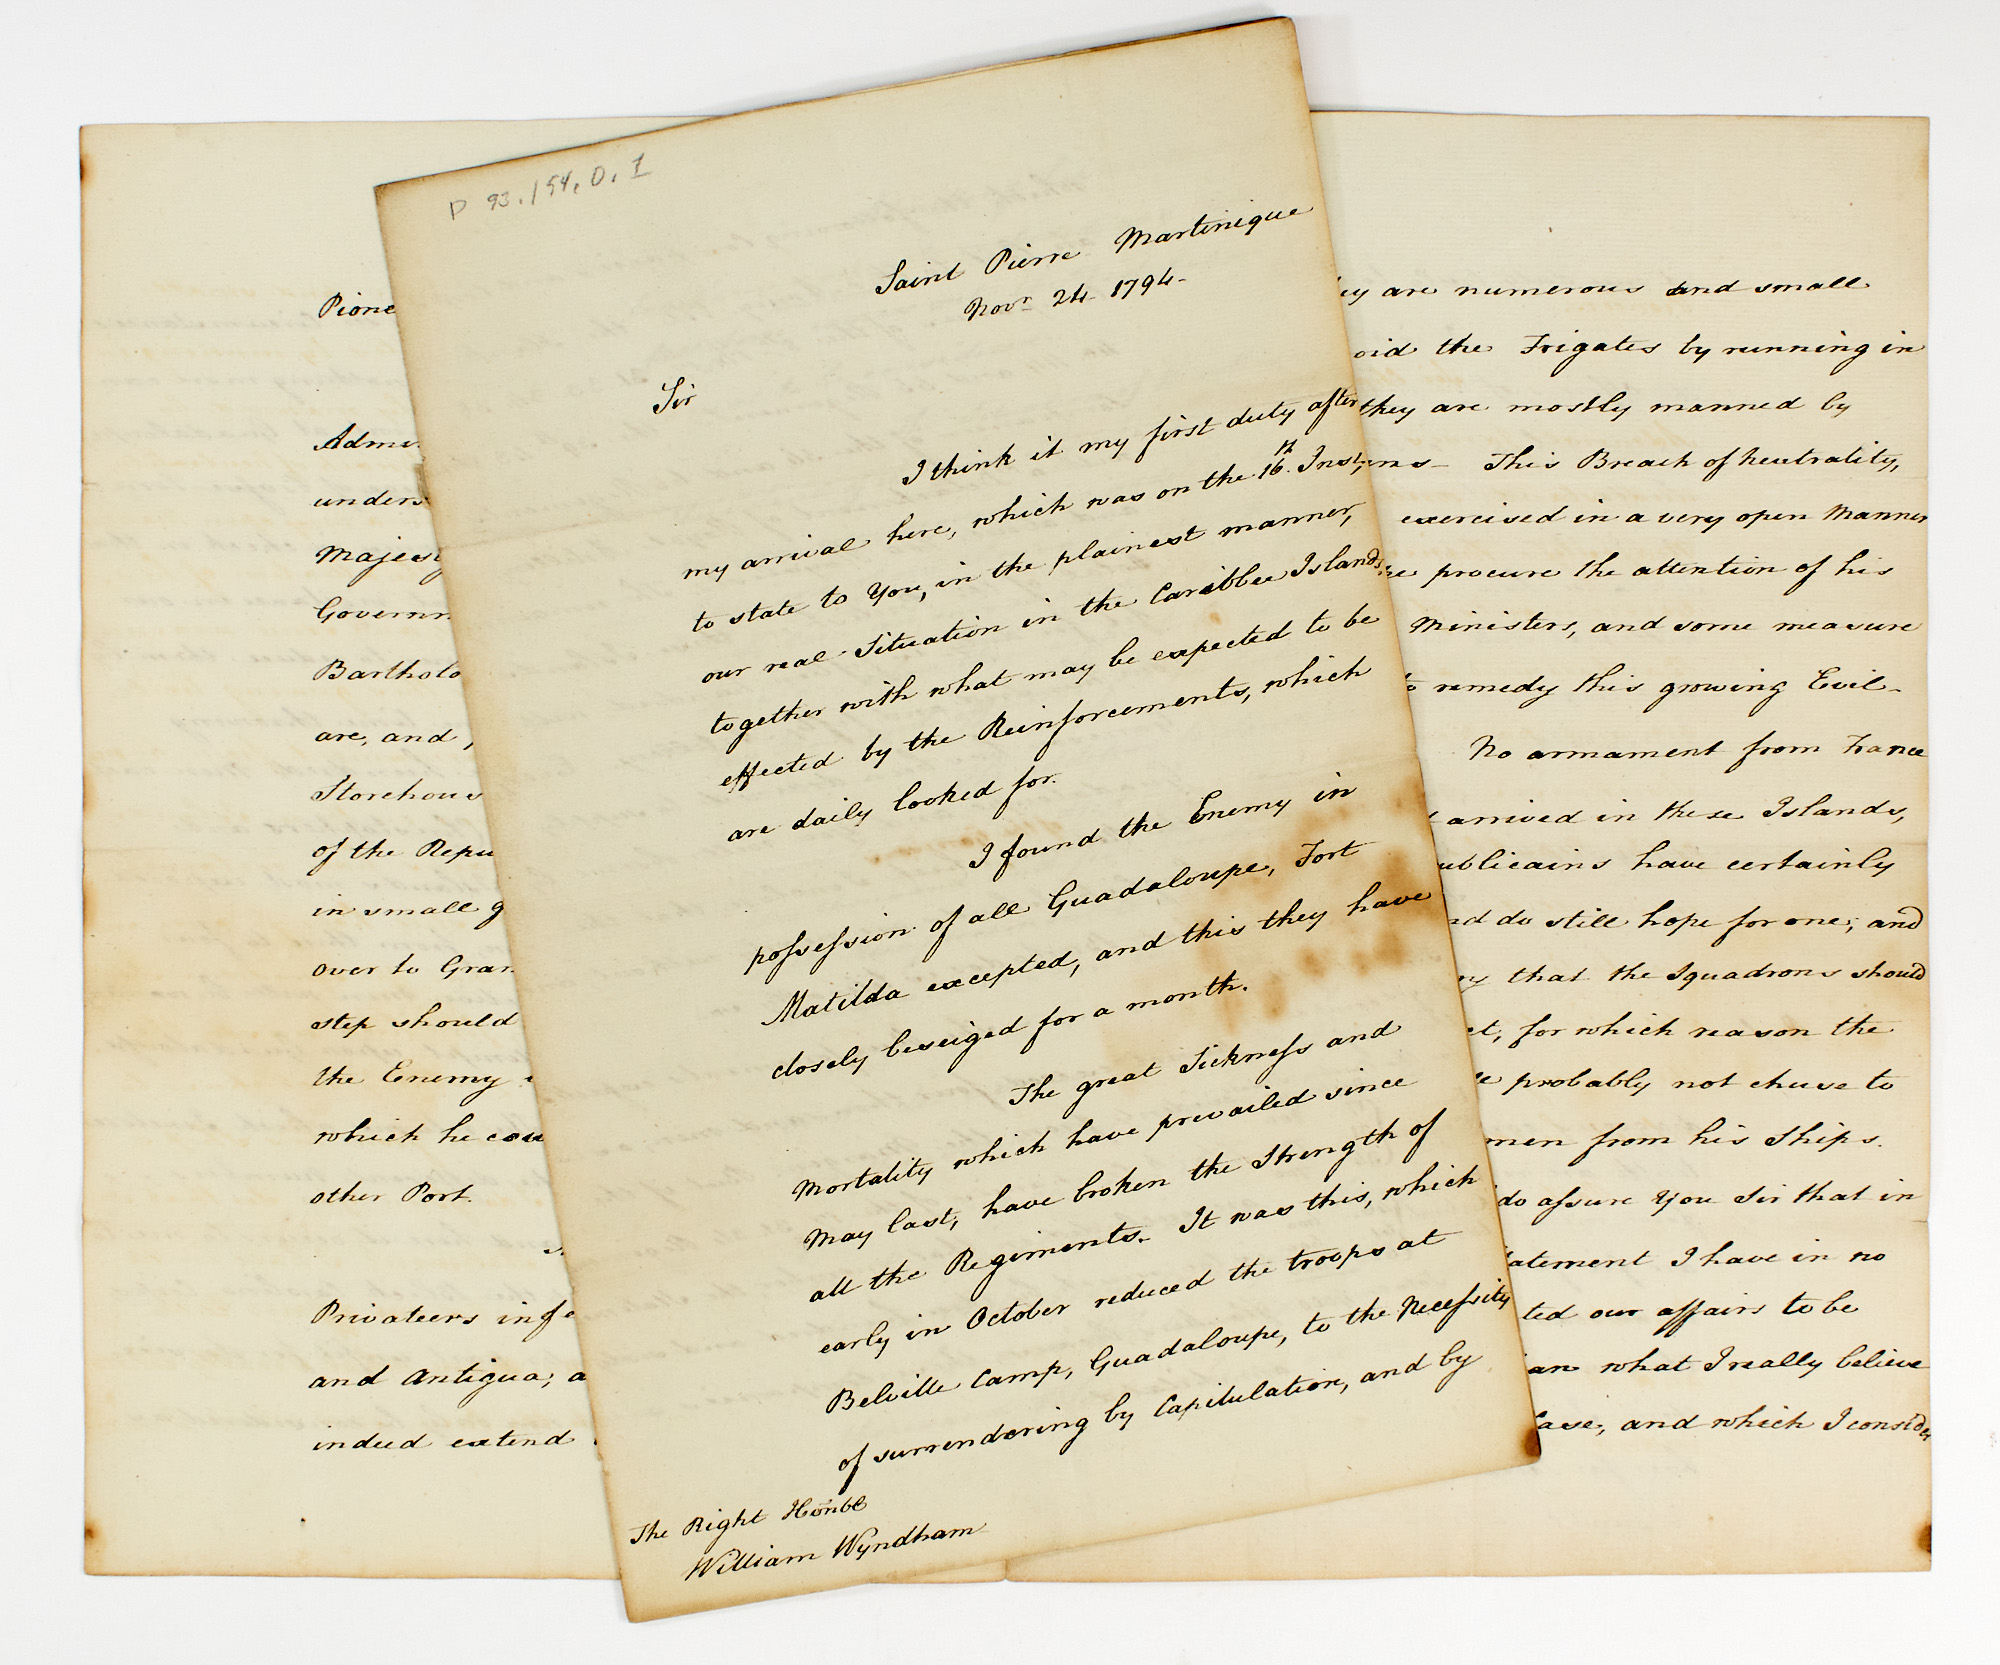 P 93.154.0.1
Saint Pierre Martinique
Novr 24 1794-
Sir
I think it my first duty after
my arrival here, which was on the 16th. Inst,
to state to You, in the plainest manner,
our real Situation in the Caribbee Islands,
together with what may be expected to be
effected by the Reinforcements, which
are daily looked for.
I found the Enemy in
possession of all Guadaloupe, Fort
Matilda excepted, and this they have
closely beseiged for a month.
The great Sickness and
Mortality which have prevailed since
May last, have broken the Strength of
all the Regiments. It was this, which
early in October reduced the troops at
Belville Camp, Guadaloupe, to the Necessity
of surrendering by Capitulation, and by
The Right Honble
William Wyndham
Pione
Admi
unders
Majesty
Governm
Bartholo
are, and
Storehous
of the Repu
in small g
over to Gran
step should
the Enemy
which he cou
other Port.
Privateers infe
and Antigua; a
indeed extend
ey are numerous and small
oid the Frigates by running in
they are mostly manned by
ns - This Breach of Neutrality,
exercised in a very open Manner
me procure the attention of his
Ministers, and some measure
to remedy this growing Evil-
No armament from France
t arrived in these Islands,
ublicains have certainly
nd do still hope for one; and
ny that the Squadrons should
et, for which reason the
e probably not chuse to
men from his Ships.
do assure You Sir that in
tatement I have in no
ted our affairs to be
an what I really believe
Case, and which I consider